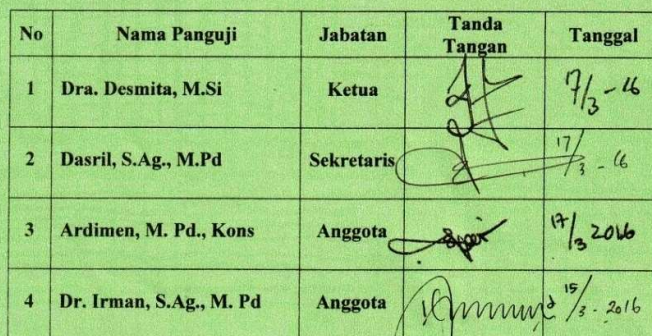 No Nama Panguji Jabatan Tanda Tangan Tanggal
1 Dra. Desmita, M.Si Ketua 17/3 - 16
2 Dasril, S.Ag., M.Pd Sekretaris 17/3 - 16
3 Ardimen, M. Pd., Kons Anggota 17/3 2016
4 Dr. Irman, S.Ag., M. Pd Anggota 15/3 - 2016